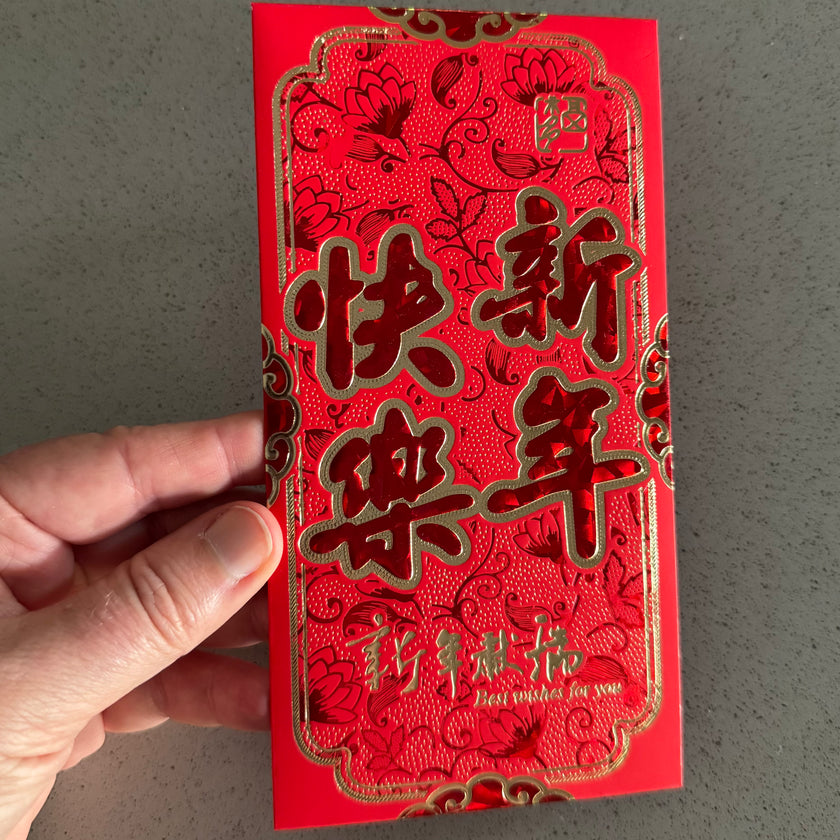 福
新年
快樂
新年献瑞
Best wishes for you